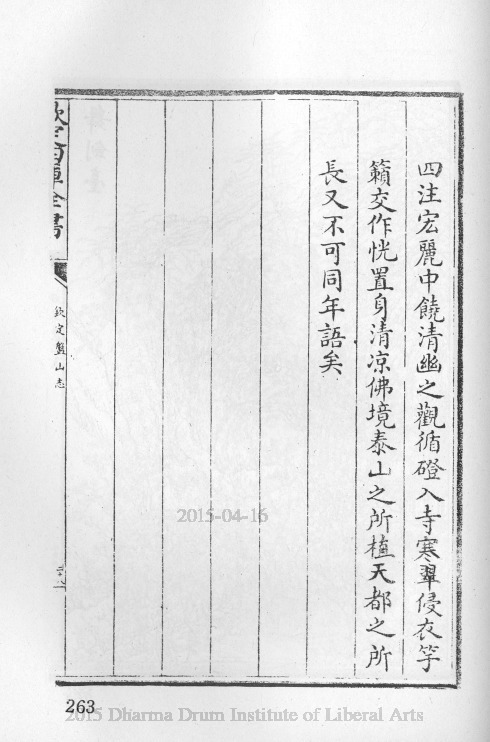 四注宏麗中饒清幽之觀循磴入寺寒翠侵衣竽
籟交作恍置身清凉佛境泰山之所植天都之所
長又不可同年語矣
欽定四庫全書
欽定盤山志
2015-04-16
263
2015 Dharma Drum Institute of Liberal Arts